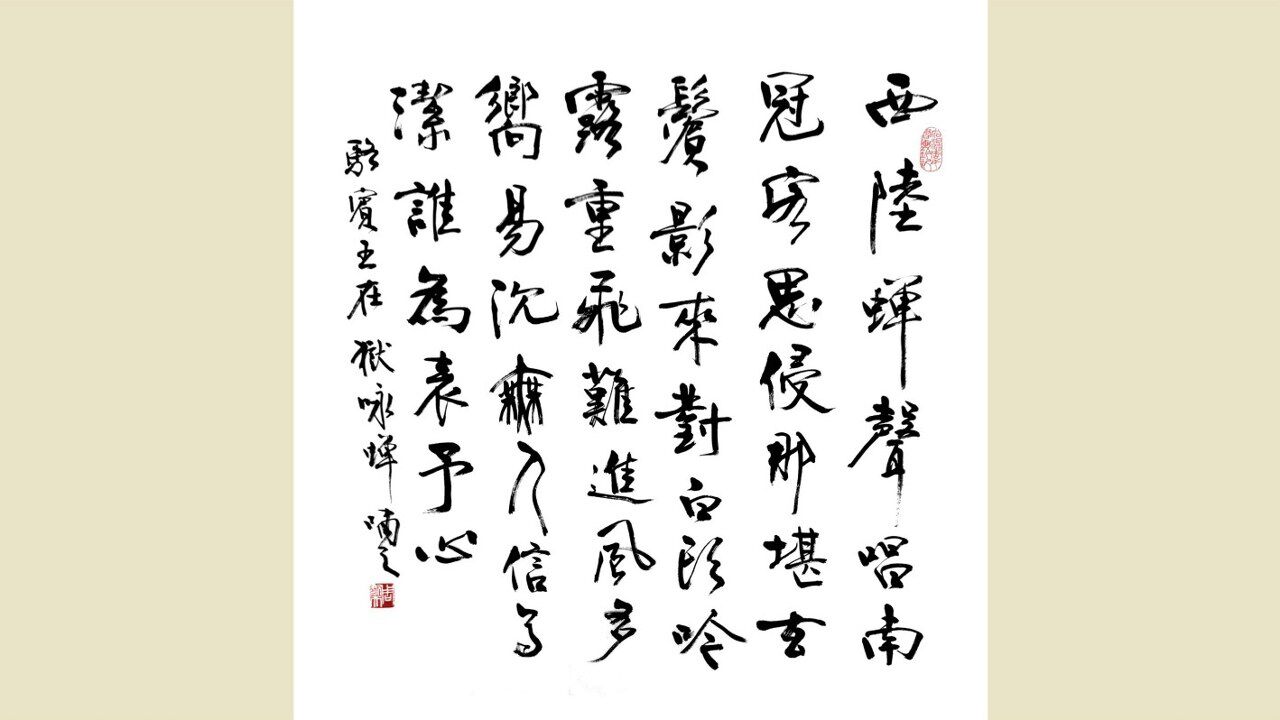 西陸蟬聲唱南
冠客思侵那堪玄
鬢影來對白頭吟
露重飛難進風多
嚮易沈無人信高
潔誰為表予心
駱賓王在獄咏蟬